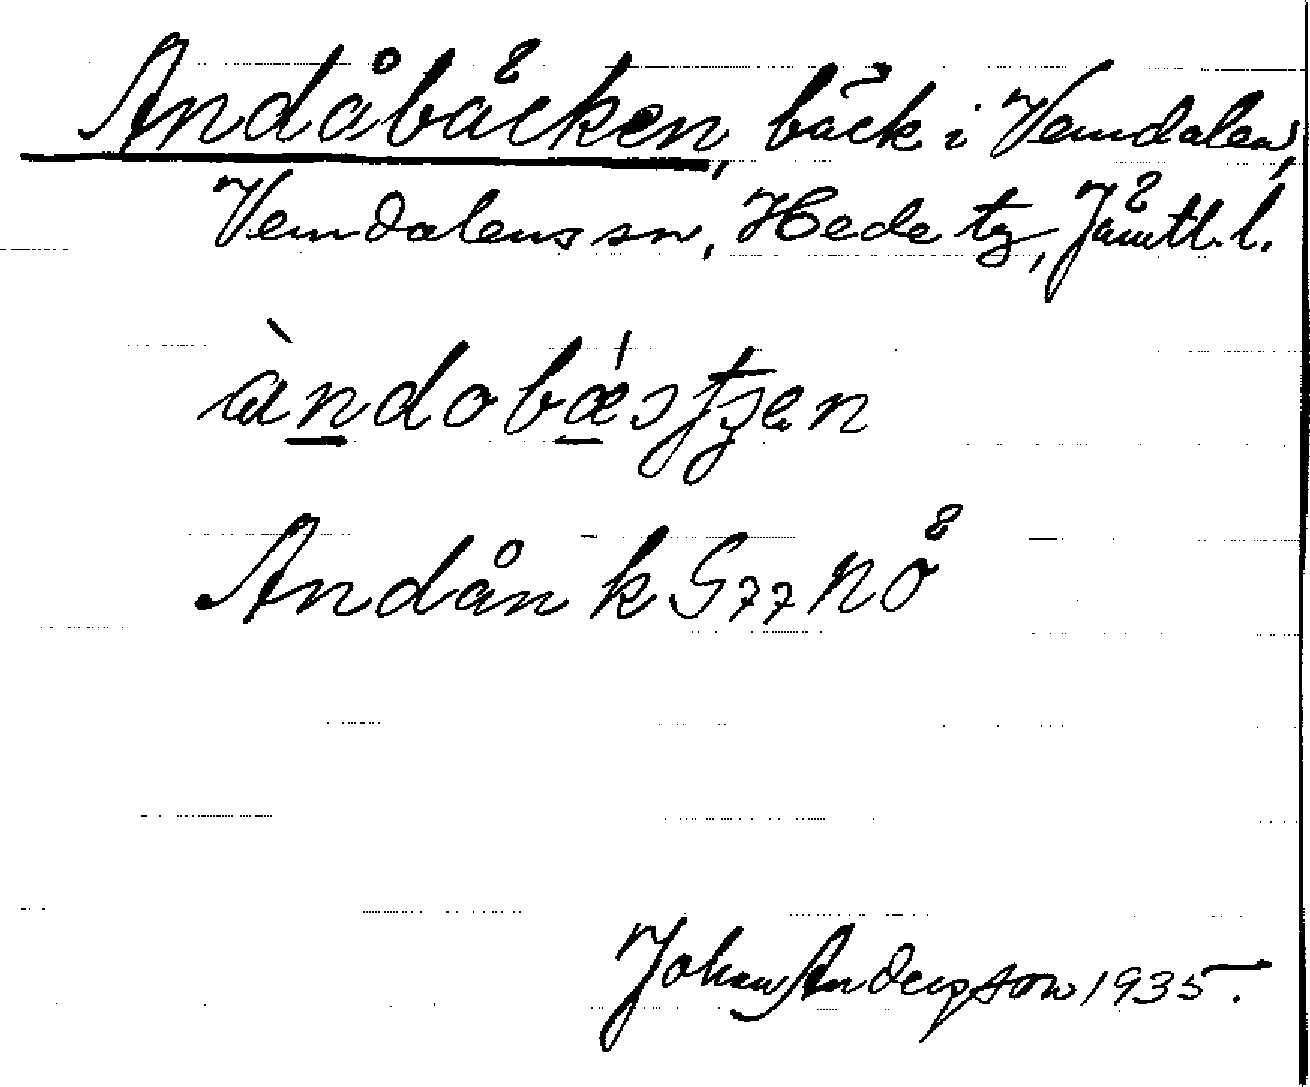 Andåbäcken, bäck i Vemdalen,
Vemdalens sn, Hede tg, Jämtl. l.
àndobǽstʃen
Andån k G77 nö
Johan Andersson 1935.